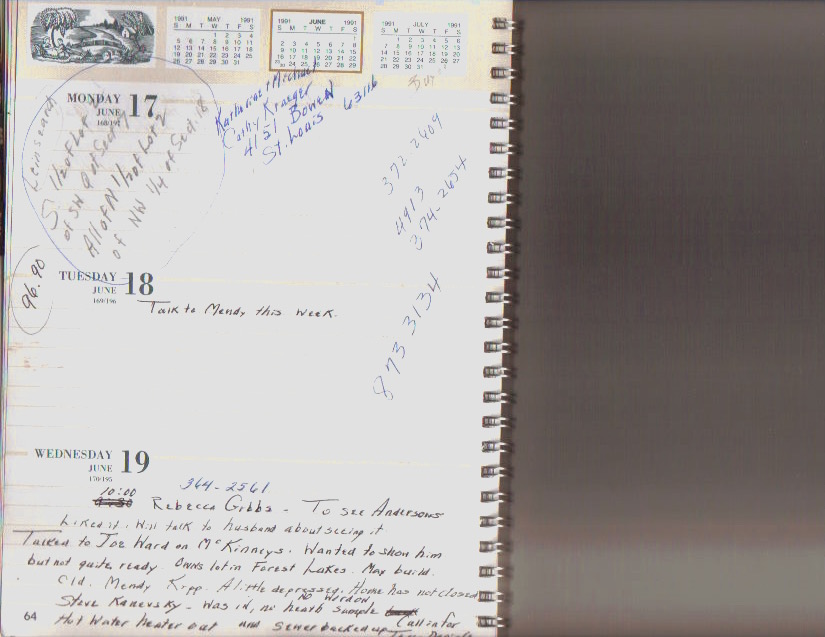 1991 MAY 1991
S M T W T F S
1 2 3 4
5 6 7 8 9 10 11
12 13 14 15 16 17 18
19 20 21 22 23 24 25
26 27 28 29 30 31
1991 JUNE 1991
S M T W T F S
1
2 3 4 5 6 7 8
9 10 11 12 13 14 15
16 17 18 19 20 21 22
23/30 24 25 26 27 28 29
1991 JULY 1991
S M T W T F S
1 2 3 4 5 6
7 8 9 10 11 12 13
14 15 16 17 18 19 20
21 22 23 24 25 26 27
28 29 30 31
MONDAY 17
JUNE
168/197
Lein search
S 1/2 of Lot
of SW of Sect 7
All of N 1/2 of Lot 2
of NW 1/4 of Sect. 18
Katherine + Michael
Cathy Krueger
4151 Bowen
St. Louis 63116
372-2609
4913
374-2654
96.90
TUESDAY 18
JUNE
169/196
Talk to Mendy this week.
873 3134
WEDNESDAY 19
JUNE
170/195
10:00 364-2561
9:30 Rebecca Gibbs - To see Andersons
Liked it. Will talk to husband about seeing it
Talked to Joe Ward on McKinneys. Wanted to show him
but not quite ready. Owns lot in Forest Lakes. May build.
Cld. Mendy Kipp. A little depressed. Home has not closed
Steve Kanevsky - Was in, no heath sample Call in for
Hot Water heater out and sewer backed up
64